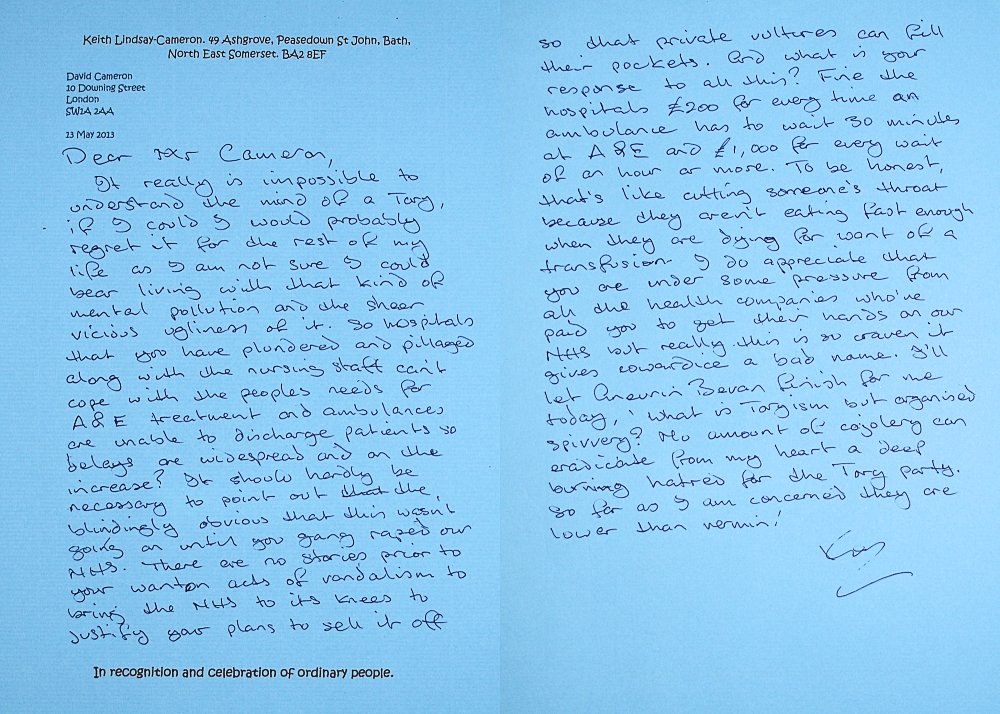 Keith Lindsay-Cameron. 49 Ashgrove, Peasedown St John, Bath,
North East Somerset. BA2 8EF
David Cameron
10 Downing Street
London
SW1A 2AA
13 May 2013
Dear Mr Cameron,
It really is impossible to
understand the mind of a Tory,
if I could I would probably
regret it for the rest of my
life as I am not sure I could
bear living with that kind of
mental pollution and the sheer
vicious ugliness of it. So hospitals
that you have plundered and pillaged
along with the nursing staff can't
cope with the peoples needs for
A&E treatment and ambulances
are unable to discharge patients so
delays are widespread and on the
increase? It should hardly be
necessary to point out that the,
blindingly obvious that this wasn't
going on until you gang raped our
NHS. There are no stories prior to
your wanton acts of vandalism to
bring the NHS to its knees to
justify your plans to sell it off
In recognition and celebration of ordinary people.
so that private vultures can fill
their pockets. And what is your
response to all this? Fine the
hospitals £200 for every time an
ambulance has to wait 30 minutes
at A&E and £1,000 for every wait
of an hour or more. To be honest,
that's like cutting someone's throat
because they aren't eating fast enough
when they are dying for want of a
transfusion. I do appreciate that
you are under some pressure from
all the health companies who've
paid you to get their hands on our
NHS but really this is so craven it
gives cowardice a bad name. I'll
let Aneurin Bevan finish for me
today, 'what is Toryism but organised
spivvery? No amount of cajolery can
eradicate from my heart a deep
burning hatred for the Tory party.
So far as I am concerned they are
lower than vermin!